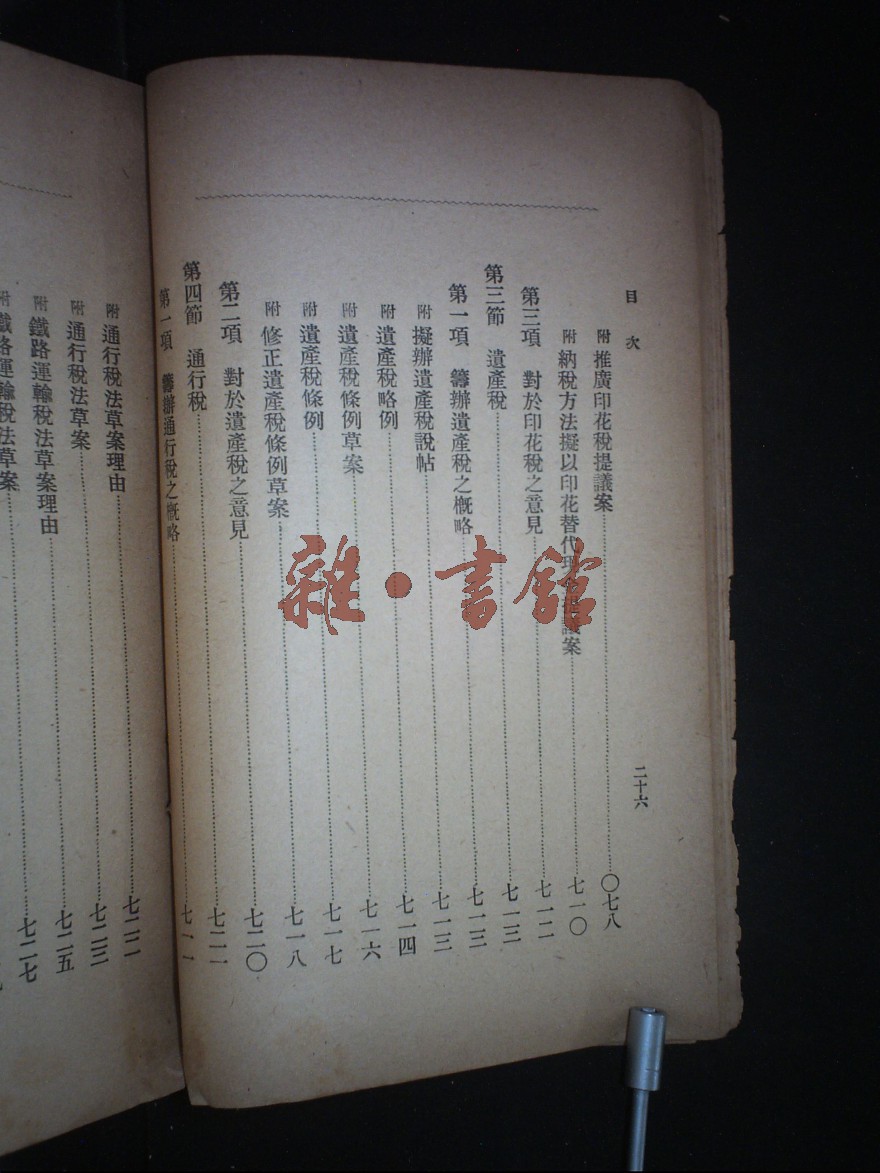 目次
二十六
附 推廣印花稅提議案……〇七八
附 納稅方法擬以印花替代現金提議案……七一〇
第三項 對於印花稅之意見……七一二
第三節 遺產稅……七一三
第一項 籌辦遺產稅之概略……七一三
附 擬辦遺產稅說帖……七一三
附 遺產稅略例……七一四
附 遺產稅條例草案……七一六
附 遺產稅條例……七一七
附 修正遺產稅條例草案……七一八
第二項 對於遺產稅之意見……七二〇
第四節 通行稅……七二一
第一項 籌辦通行稅之概略……
附 通行稅法草案理由……七二二
附 通行稅法草案……七二三
附 鐵路運輸稅法草案理由……七二五
附 鐵路運輸稅法草案……七二七
雜·書館